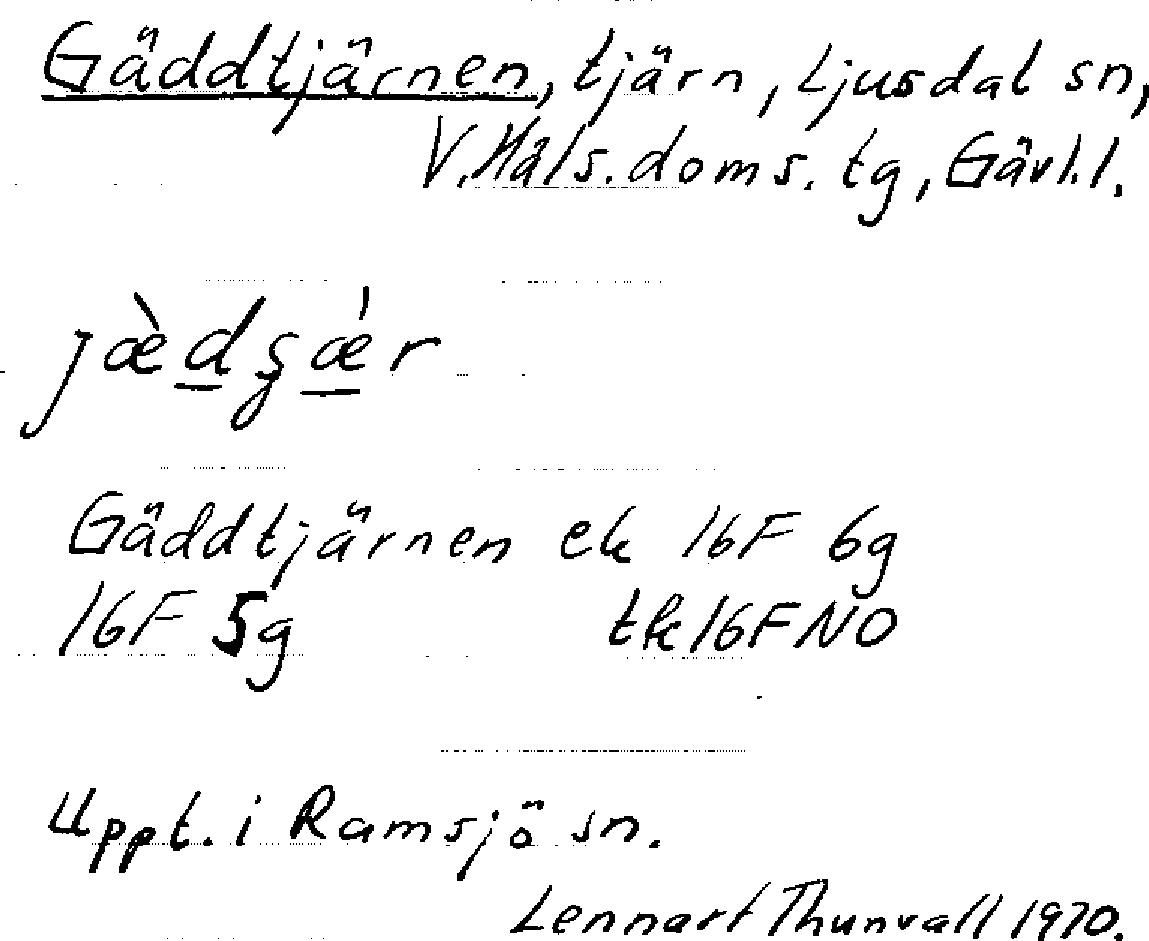 Gäddtjärnen, tjärn, Ljusdal sn,
V. Häls. doms. tg, Gävl. l.
Gäddtjärnen ek 16F 6g
16F 5g tk 16F NO
Uppt. i Ramsjö sn.
Lennart Thunvall 1970.